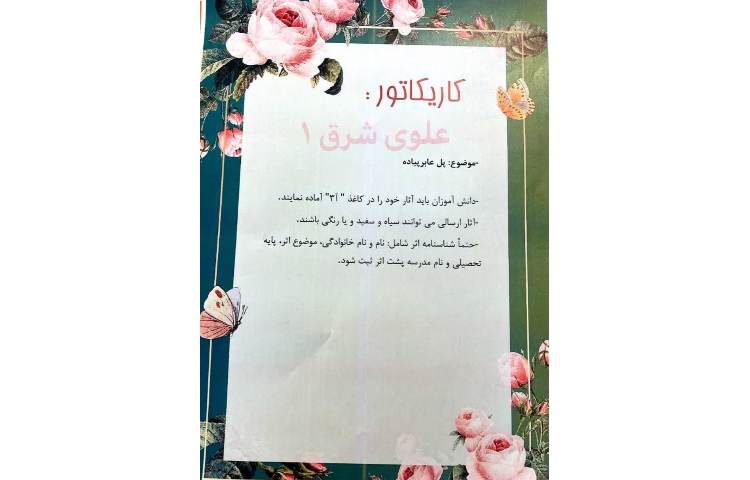 کاریکاتور :
علوی شرق ۱
-موضوع: پل عابرپیاده
-دانش آموزان باید آثار خود را در کاغذ " آ۳" آماده نمایند.
-آثار ارسالی می توانند سیاه و سفید و یا رنگی باشند.
-حتماً شناسنامه اثر شامل: نام و نام خانوادگی، موضوع اثر، پایه
تحصیلی و نام مدرسه پشت اثر ثبت شود.